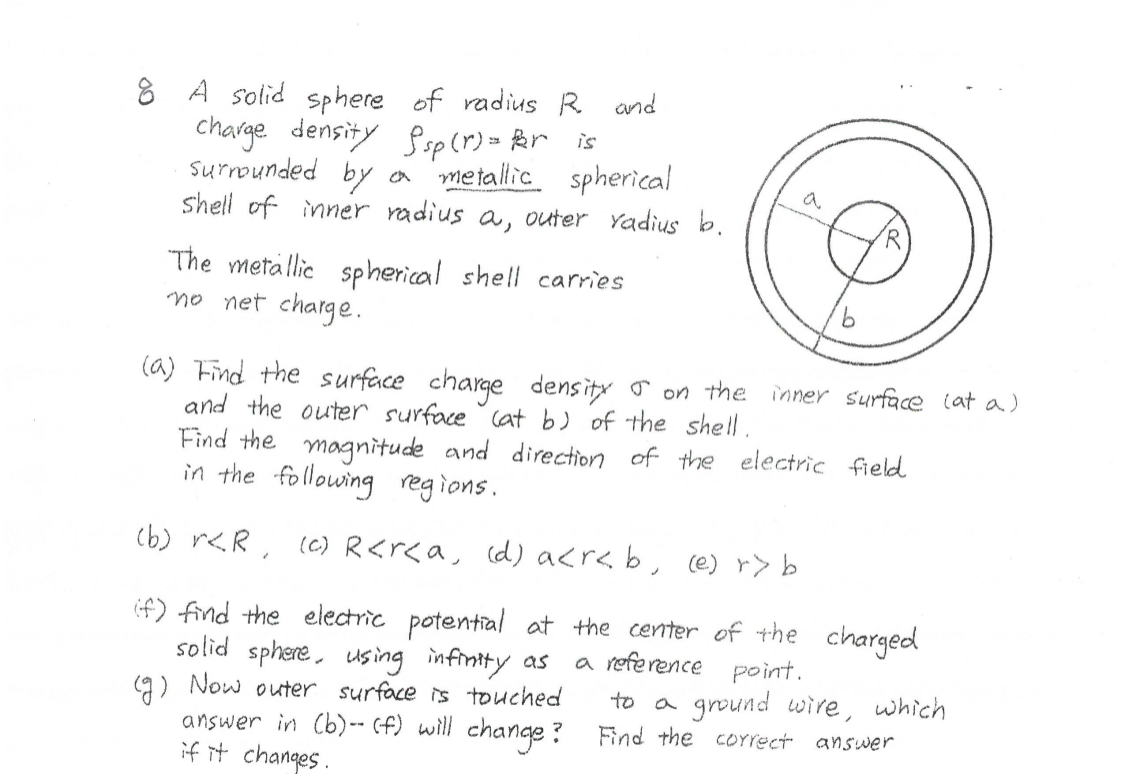 8 A solid sphere of radius R and
charge density ρsp(r) = kr is
surrounded by a metallic spherical
shell of inner radius a, outer radius b.
The metallic spherical shell carries
no net charge.
a
R
b
(a) Find the surface charge density σ on the inner surface (at a)
and the outer surface (at b) of the shell.
Find the magnitude and direction of the electric field
in the following regions.
(b) r<R, (c) R<r<a, (d) a<r<b, (e) r>b
(f) find the electric potential at the center of the charged
solid sphere, using infinity as a reference point.
(g) Now outer surface is touched to a ground wire, which
answer in (b)-- (f) will change? Find the correct answer
if it changes.